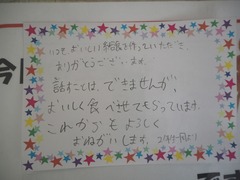 いつもおいしい給食を作っていただき、
ありがとうございます。
話すことは、できませんが、
おいしく食べさせてもらっています。
これからもよろしく
おねがいします。
今